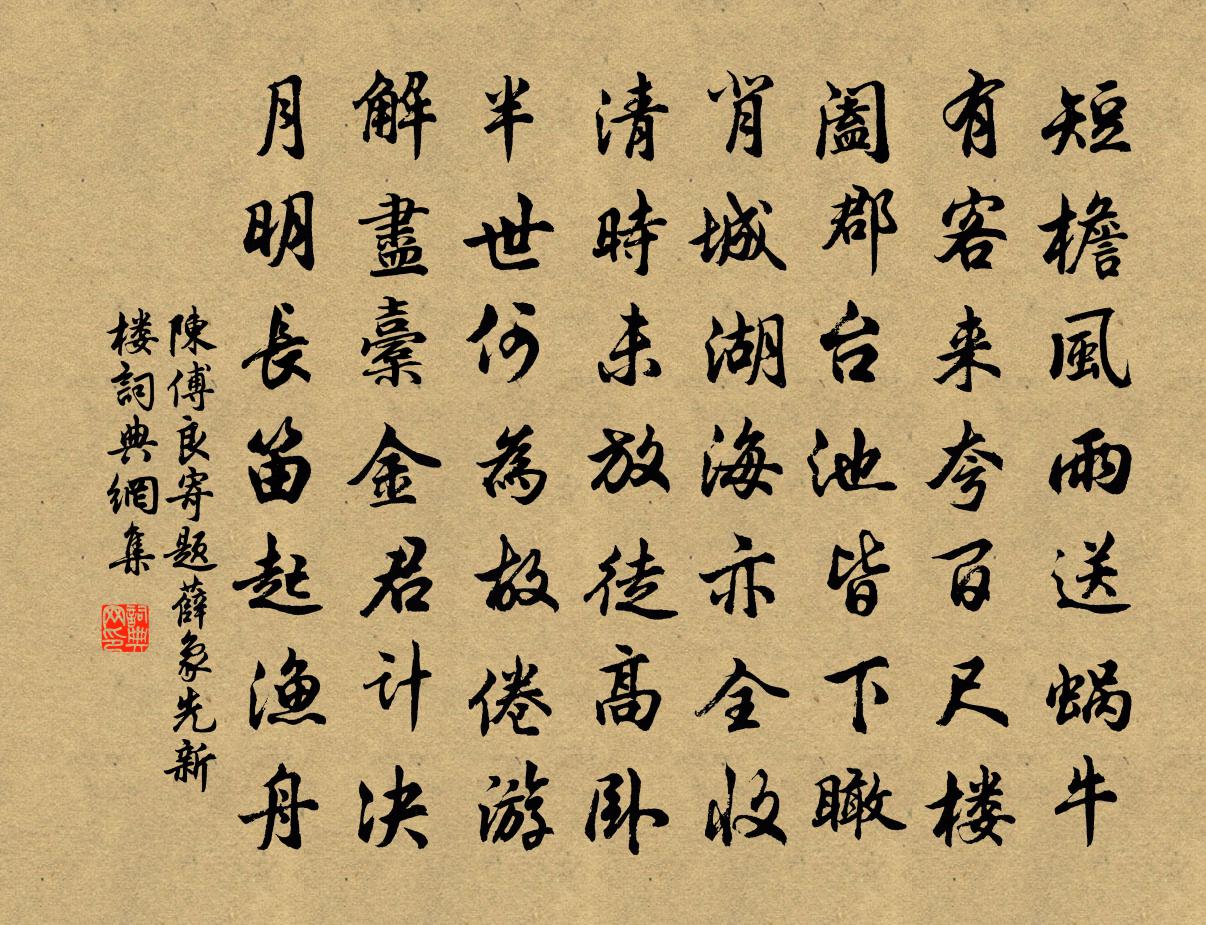 短檐風雨送蜗牛
有客来夸百尺楼
阖郡台池皆下瞰
肖城湖海亦全收
清時未放徒高卧
半世何為故倦游
解盡橐金君计决
月明長笛起渔舟
陳傅良寄题薛象先新
楼詞典網集
詞典网印